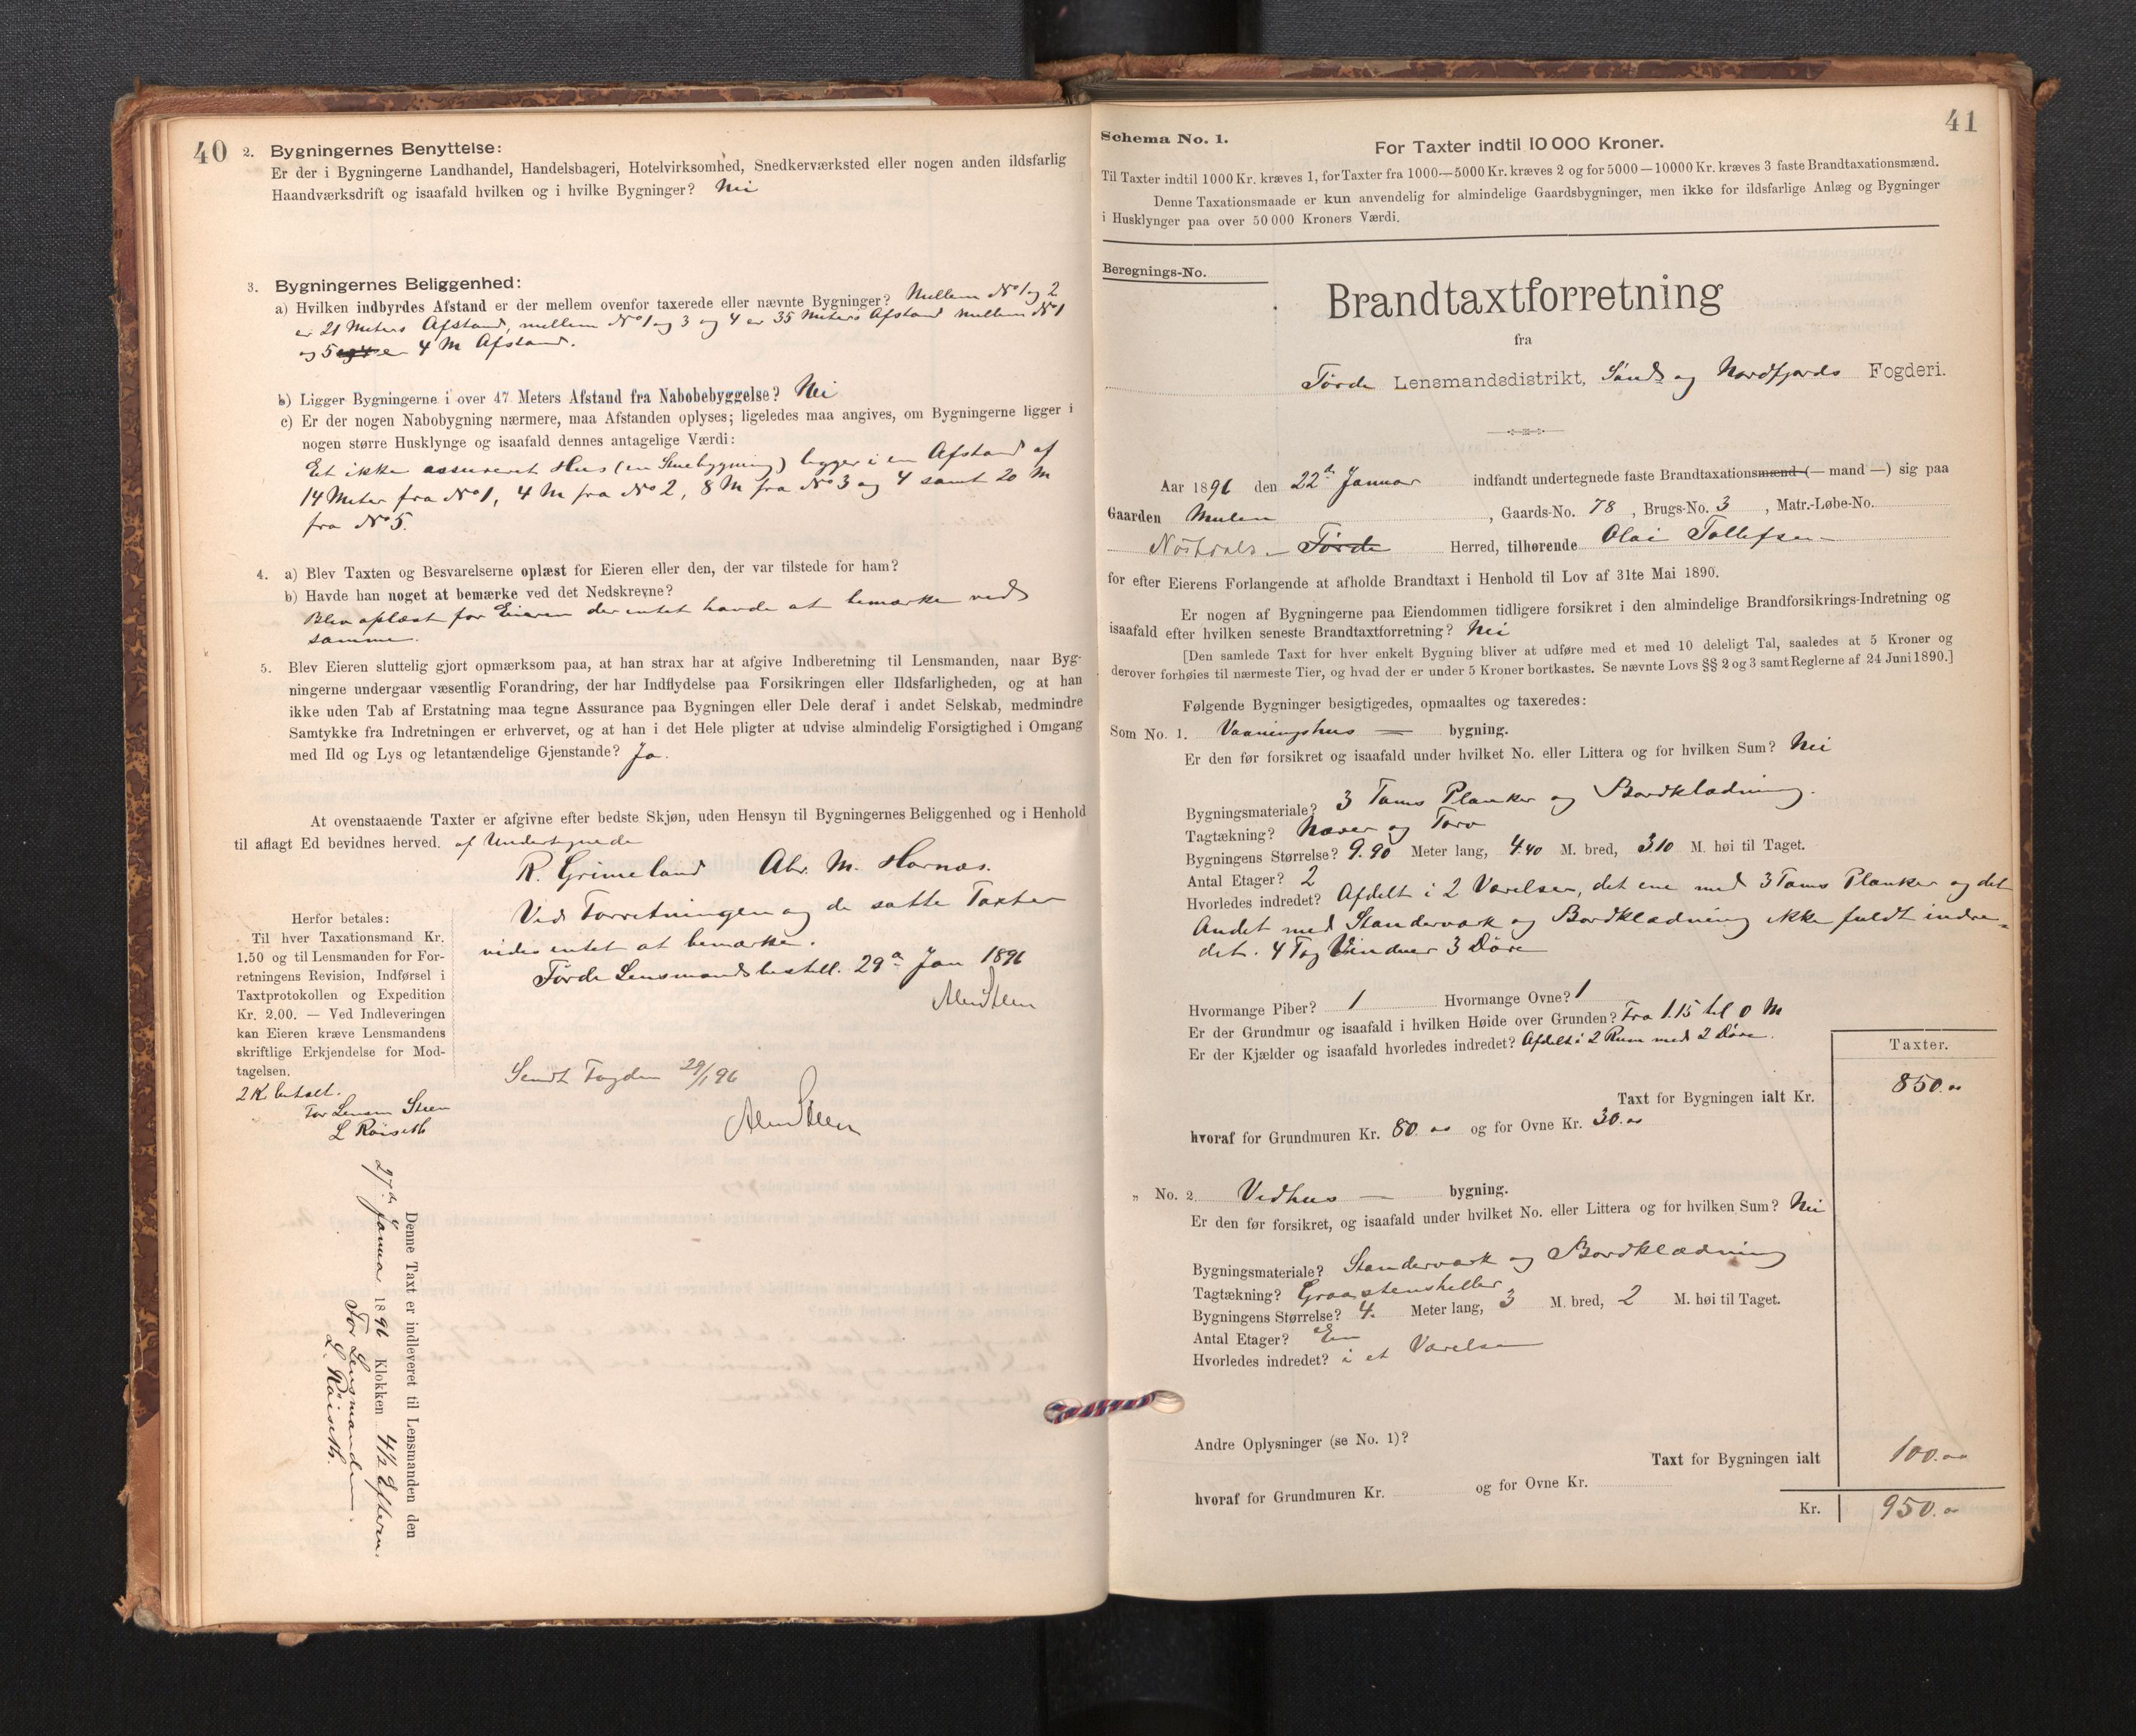 40
2. Bygningernes Benyttelse:
Er der i Bygningerne Landhandel, Handelsbageri, Hotelvirksomhed, Snedkerværksted eller nogen anden ildsfarlig
Haandværksdrift og isaafald hvilken og i hvilke Bygninger? Nei
3. Bygningernes Beliggenhed:
a) Hvilken indbyrdes Afstand er der mellem ovenfor taxerede eller nævnte Bygninger? Mellem No 1 og 2
er 21 Meters Afstand, mellem No 1 og 3 og 4 er 35 Meters Afstand mellem No 1
og 5 er 4 M Afstand.
b) Ligger Bygningerne i over 47 Meters Afstand fra Nabobebyggelse? Nei
c) Er der nogen Nabobygning nærmere, maa Afstanden oplyses; ligeledes maa angives, om Bygningerne ligger i
nogen større Husklynge og isaafald dennes antagelige Værdi:
Et ikke assureret Hus (en Stuebygning) ligger i en Afstand af
14 Meter fra No 1, 4 M fra No 2, 8 M fra No 3 og 4 samt 20 M
fra No 5.
4. a) Blev Taxten og Besvarelserne oplæst for Eieren eller den, der var tilstede for ham?
b) Havde han noget at bemærke ved det Nedskrevne?
Blev oplæst for Eieren der intet havde at bemærke ved
samme.
5. Blev Eieren sluttelig gjort opmærksom paa, at han strax har at afgive Indberetning til Lensmanden, naar Byg-
ningerne undergaar væsentlig Forandring, der har Indflydelse paa Forsikringen eller Ildsfarligheden, og at han
ikke uden Tab af Erstatning maa tegne Assurance paa Bygningen eller Dele deraf i andet Selskab, medmindre
Samtykke fra Indretningen er erhvervet, og at han i det Hele pligter at udvise almindelig Forsigtighed i Omgang
med Ild og Lys og letantændelige Gjenstande? Ja.
At ovenstaaende Taxter er afgivne efter bedste Skjøn, uden Hensyn til Bygningernes Beliggenhed og i Henhold
til aflagt Ed bevidnes herved. af Undertegnede
R. Grimeland Abr. M. Hornæs.
Ved Forretningen og de satte Taxter
vides intet at bemærke.
Førde Lensmandsbestill. 29de Jan 1896
Sendt Fogden 29/1 96
Herfor betales:
Til hver Taxationsmand Kr.
1.50 og til Lensmanden for For-
retningens Revision, Indførsel i
Taxtprotokollen og Expedition
Kr. 2.00. — Ved Indleveringen
kan Eieren kræve Lensmandens
skriftlige Erkjendelse for Mod-
tagelsen.
2 Kr betalt.
For Lensm Steen
L Røiseth
Denne Taxt er indleveret til Lensmanden den
27de Januar 1896 Klokken 4 1/2 Efterm.
For Lensmanden.
L. Røiseth.
41
Schema No. 1.
For Taxter indtil 10 000 Kroner.
Til Taxter indtil 1000 Kr. kræves 1, for Taxter fra 1000—5000 Kr. kræves 2 og for 5000—10000 Kr. kræves 3 faste Brandtaxationsmænd.
Denne Taxationsmaade er kun anvendelig for almindelige Gaardsbygninger, men ikke for ildsfarlige Anlæg og Bygninger
i Husklynger paa over 50 000 Kroners Værdi.
Beregnings-No.
Brandtaxtforretning
fra
Førde Lensmandsdistrikt, Sønd og Nordfjords Fogderi.
Aar 1896 den 22de Januar indfandt undertegnede faste Brandtaxationsmænd (— mand —) sig paa
Gaarden Mulen, Gaards-No. 78, Brugs-No. 3, Matr.-Løbe-No.
Førde Herred, tilhørende Olai Tollefsen
for efter Eierens Forlangende at afholde Brandtaxt i Henhold til Lov af 31te Mai 1890.
Er nogen af Bygningerne paa Eiendommen tidligere forsikret i den almindelige Brandforsikrings-Indretning og
isaafald efter hvilken seneste Brandtaxtforretning? Nei
[Den samlede Taxt for hver enkelt Bygning bliver at udføre med et med 10 deleligt Tal, saaledes at 5 Kroner og
derover forhøies til nærmeste Tier, og hvad der er under 5 Kroner bortkastes. Se nævnte Lovs §§ 2 og 3 samt Reglerne af 24 Juni 1890.]
Følgende Bygninger besigtigedes, opmaaltes og taxeredes:
Som No. 1. Vaaningshus — bygning.
Er den før forsikret og isaafald under hvilket No. eller Littera og for hvilken Sum? Nei
Bygningsmateriale? 3 Toms Planker og Bordklædning.
Tagtækning? Næver og Torv
Bygningens Størrelse? 9.90 Meter lang, 4.40 M. bred, 3.10 M. høi til Taget.
Antal Etager? 2
Hvorledes indredet? Afdelt i 2 Værelser, det ene med 3 Toms Planker og det
Andet med Standerværk og Bordklædning ikke fuldt indre-
det. 4 Fag Vinduer 3 Døre
Hvormange Piber? 1 Hvormange Ovne? 1
Er der Grundmur og isaafald i hvilken Høide over Grunden? Fra 1.15 til 0 M
Er der Kjælder og isaafald hvorledes indredet? Afdelt i 2 Rum med 2 Døre.
Taxter.
Taxt for Bygningen ialt Kr. 850.00
hvoraf for Grundmuren Kr. 80.00 og for Ovne Kr. 30.00
„ No. 2 Vedhus — bygning.
Er den før forsikret, og isaafald under hvilket No. eller Littera og for hvilken Sum? Nei
Bygningsmateriale? Standerværk og Bordklædning
Tagtækning? Graastensheller
Bygningens Størrelse? 4. Meter lang, 3 M. bred, 2 M. høi til Taget.
Antal Etager? En
Hvorledes indredet? i et Værelse
Andre Oplysninger (se No. 1)?
Taxt for Bygningen ialt 100.00
hvoraf for Grundmuren Kr. og for Ovne Kr.
Kr. 950.00